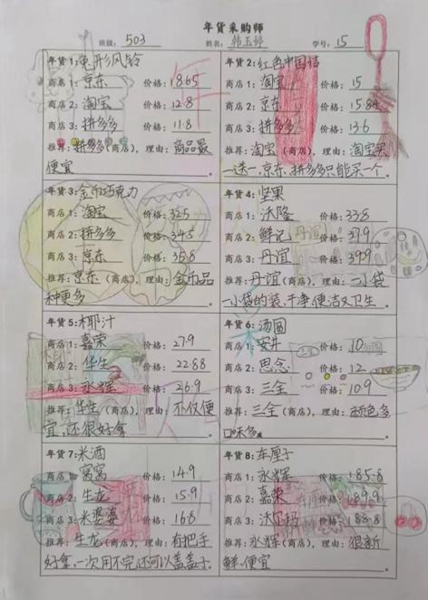 年货采购师
班级：503 姓名：韩玉婷 学号：15
年货1：兔形风铃
商店1：京东 价格：18.65
商店2：淘宝 价格：12.8
商店3：拼多多 价格：11.8
推荐：拼多多(商店)，理由：商品最
便宜。
年货2：红色中国结
商店1：淘宝 价格：15
商店2：京东 价格：15.84
商店3：拼多多 价格：13.6
推荐：淘宝(商店)，理由：淘宝买
一送一，京东、拼多多只能买一个。
年货3：金币巧克力
商店1：淘宝 价格：32.5
商店2：拼多多 价格：34.5
商店3：京东 价格：35.8
推荐：京东(商店)，理由：金币品
种更多。
年货4：坚果
商店1：沃隆 价格：33.8
商店2：鲜记 价格：39.9
商店3：丹谊 价格：39.9
推荐：丹谊(商店)，理由：一小袋
一小袋的装，干净便洁又卫生。
年货5：椰汁
商店1：嘉荣 价格：27.9
商店2：华生 价格：22.88
商店3：永辉 价格：26.9
推荐：华生(商店)，理由：不仅便
宜，还很好拿。
年货6：汤圆
商店1：安井 价格：10
商店2：思念 价格：12
商店3：三全 价格：10.9
推荐：三全(商店)，理由：颜色多
口味多。
年货7：米酒
商店1：窝窝 价格：14.9
商店2：生龙 价格：15.9
商店3：米婆婆 价格：16.8
推荐：生龙(商店)，理由：有把手
好拿，一次用不完还可以盖盖子。
年货8：车厘子
商店1：永辉 价格：185.8
商店2：嘉荣 价格：189.9
商店3：价格：188.8
推荐：永辉(商店)，理由：很新
鲜，便宜